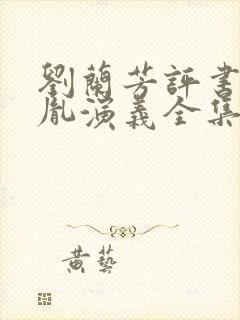 劉蘭芳評書
胤演義全集
黄藝